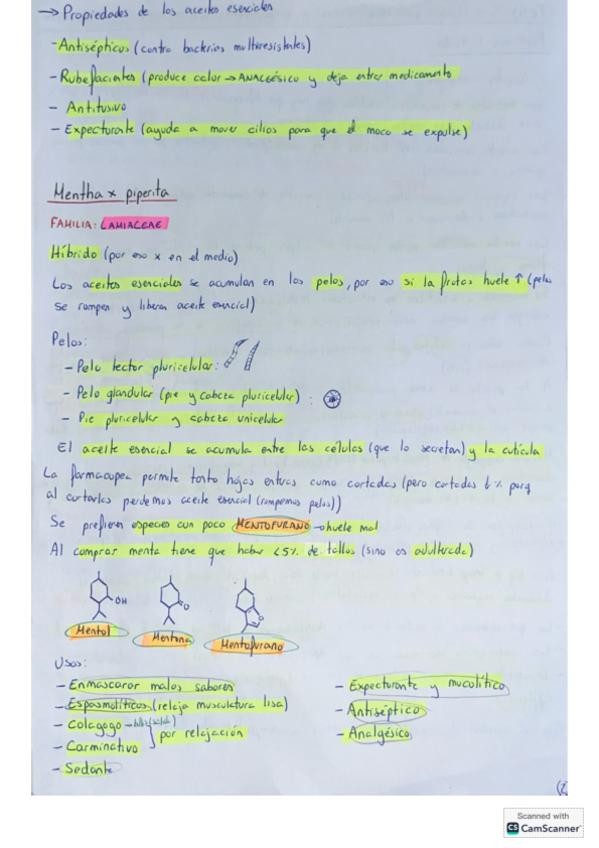 → Propiedades de los aceites esenciales
- Antisépticos (contra bacterias multiresistentes)
- Rubefacientes (produce calor → ANALGÉSICO y deja entrar medicamento
- Antitusivo
- Expectorante (ayuda a mover cilios para que el moco se expulse)
Mentha x piperita
FAMILIA: LAMIACEAE
Híbrido (por eso x en el medio)
Los aceites esenciales se acumulan en los pelos, por eso si la frotas huele ↑ (pelos
se rompen y liberan aceite esencial)
Pelos:
- Pelo tector pluricelular:
- Pelo glandular (pie y cabeza pluricelular):
- Pie pluricelular y cabeza unicelular
El aceite esencial se acumula entre las células (que lo secretan) y la cutícula
La farmacopea permite tanto hojas enteras como cortadas (pero cortadas ↓% porq
al cortarlas perdemos aceite esencial (rompemos pelos))
Se prefieren especies con poco MENTOFURANO → huele mal
Al comprar menta tiene que haber <5% de tallos (sino es adulterada)
OH
O
O
Mentol
Mentona
Mentofurano
Usos:
- Enmascarar malos sabores
- Espasmolíticos (relaja musculatura lisa)
- Colagogo
- Carminativo
por relajación
- Sedante
- Expectorante y mucolítico
- Antiséptico
- Analgésico
Scanned with
CS CamScanner